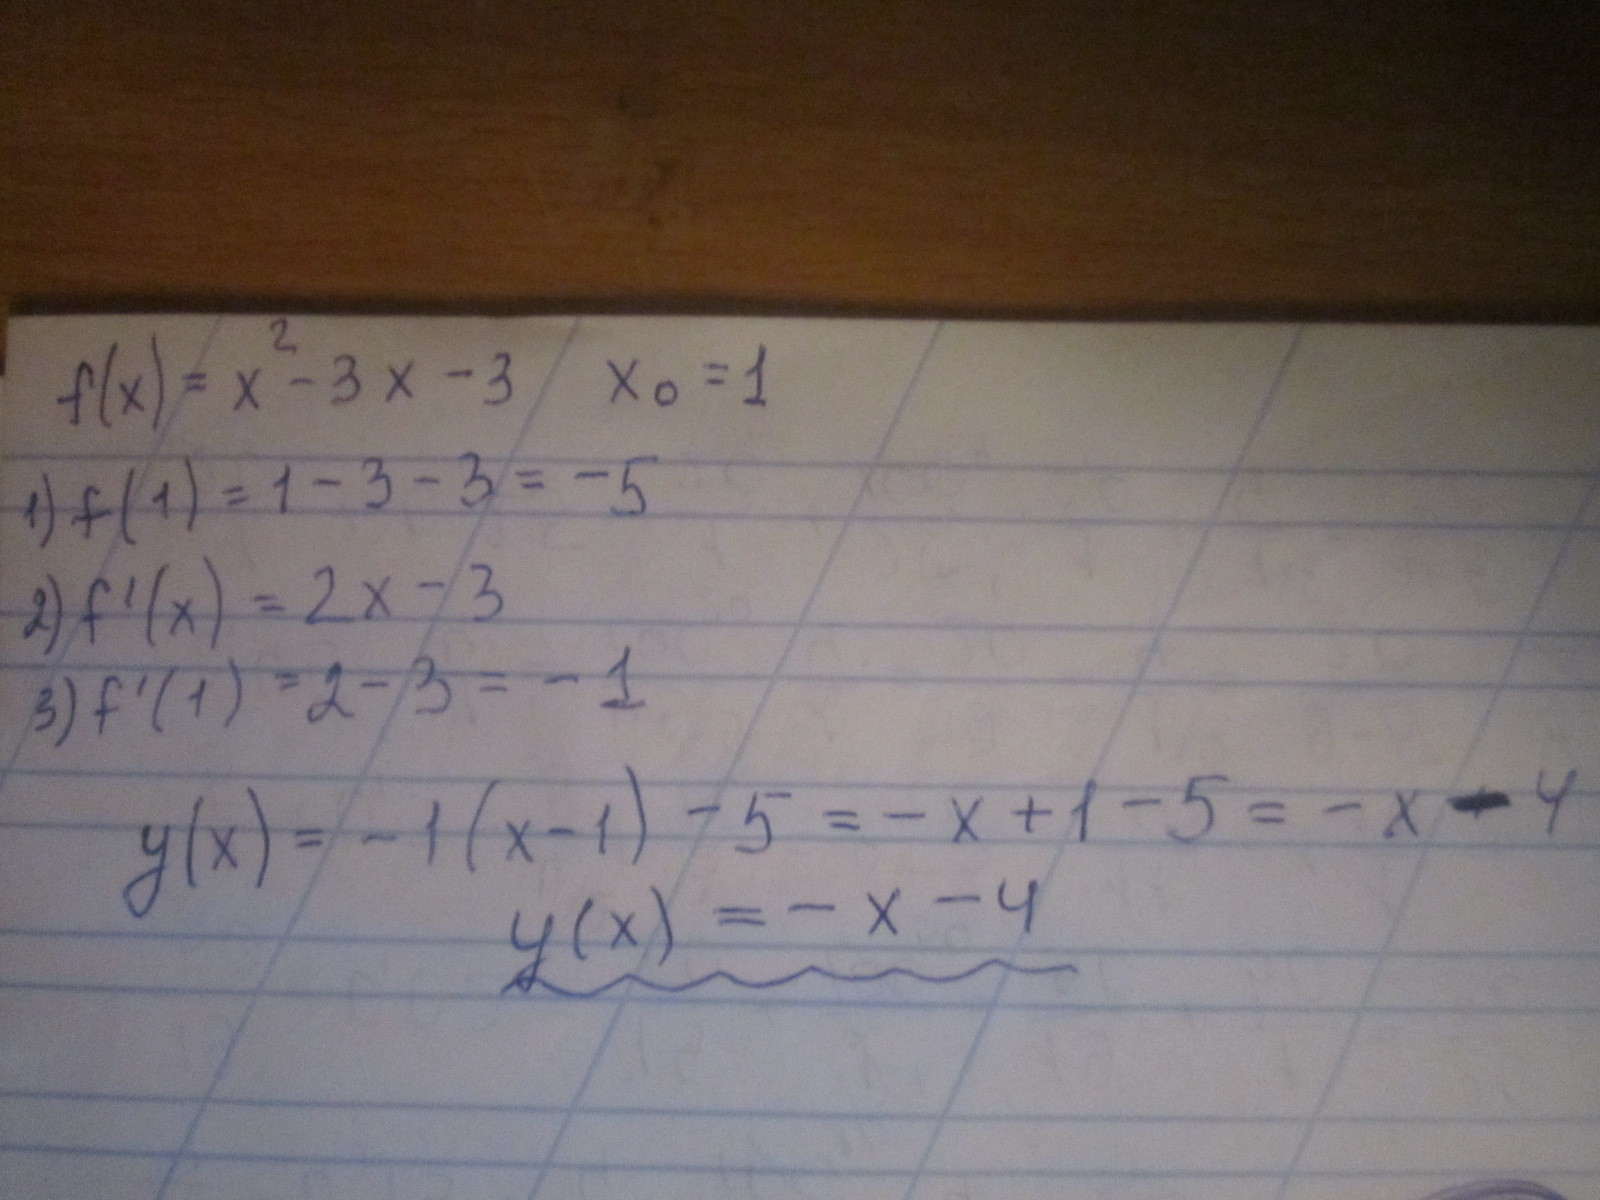 f(x) = x² - 3x - 3 x₀ = 1
1) f(1) = 1 - 3 - 3 = -5
2) f'(x) = 2x - 3
3) f'(1) = 2 - 3 = -1
y(x) = -1(x-1) - 5 = -x + 1 - 5 = -x - 4
y(x) = -x - 4